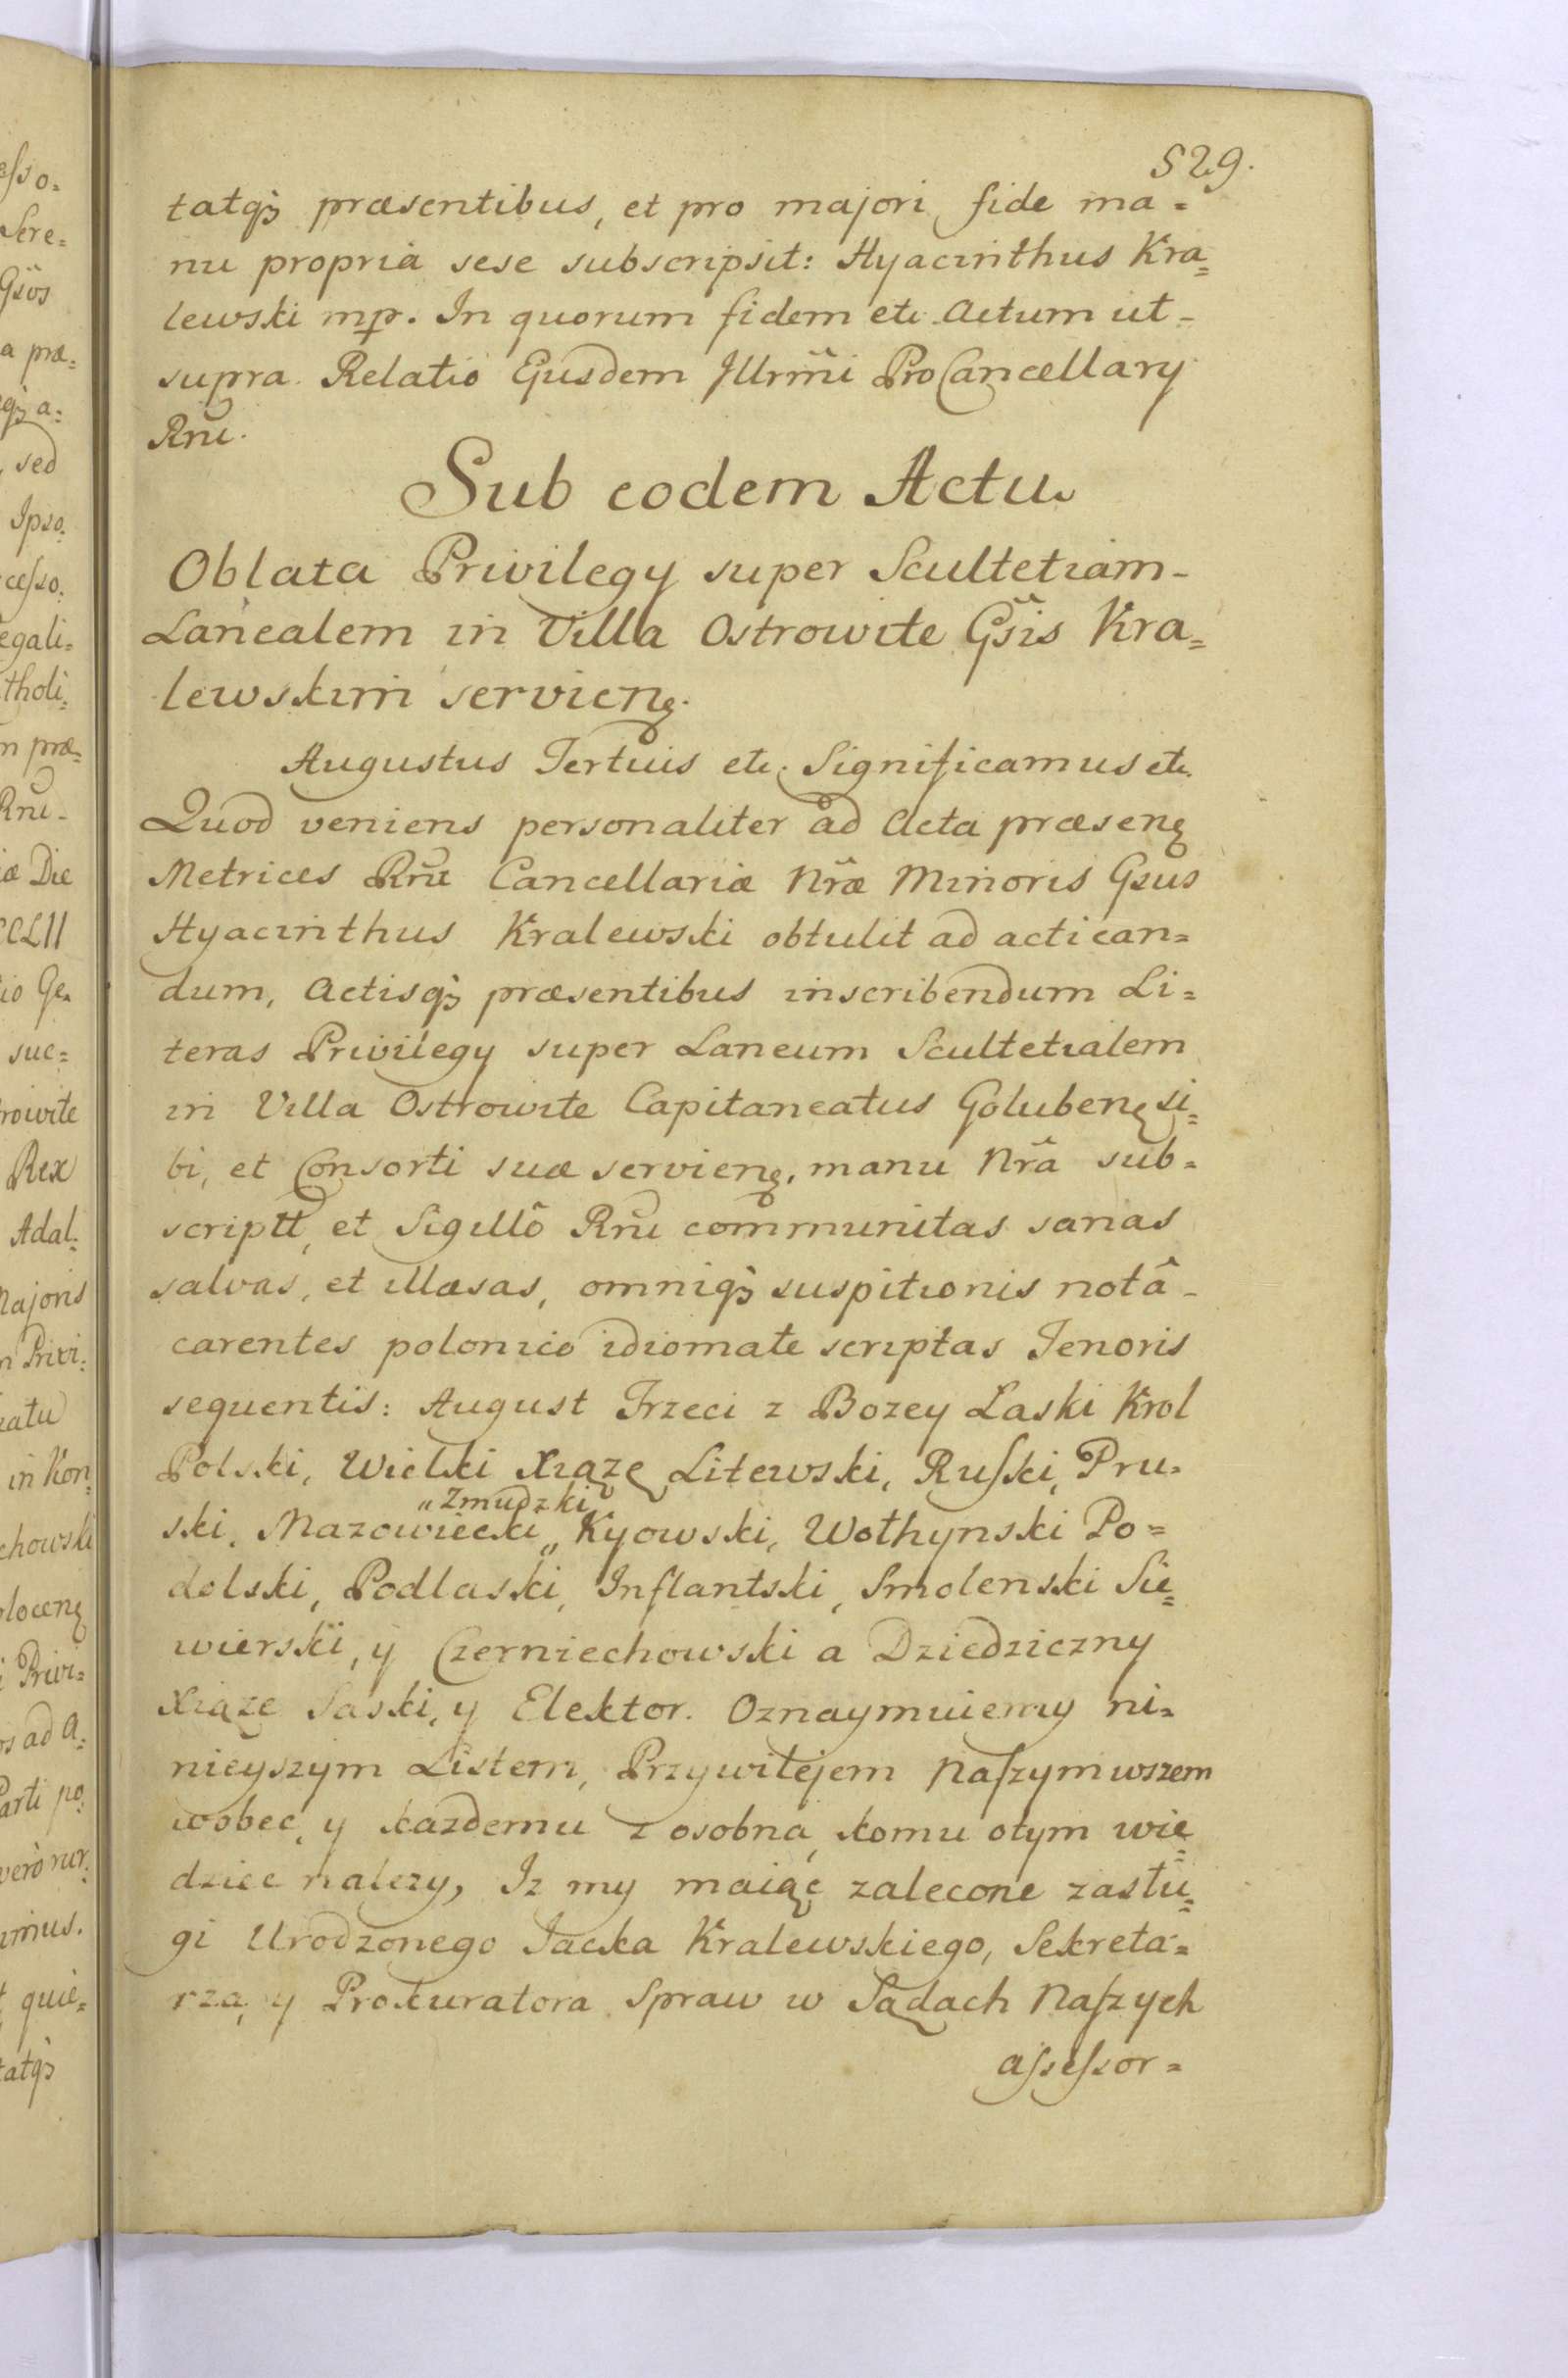 529.
tatqꝫ præsentibus, et pro majori fide ma=
nu propria sese subscripsit: Hyacinthus Kra=
lewski mp. In quorum fidem etc. Actum ut-
supra. Relatio Ejusdem Illrm̃i ProCancellary
Rñi.
Sub eodem Actu.
Oblata Privilegy super Scultetiam-
Lanealem in Villa Ostrowite Gs̃is Kra=
lewskim servieng.
Augustus Tertius etc. Significamus etc.
Quod veniens personaliter ad Acta præseng
Metrices Rñi Cancellariæ Nr̃æ Minoris Gs̃us
Hyacinthus Kralewski obtulit ad actican=
dum, Actisqꝫ præsentibus inscribendum Li=
teras Privilegy super Laneum Scultetialem
in Villa Ostrowite Capitaneatus Golubeng si=
bi, et Consorti suæ servieng, manu Nr̃â sub=
scriptt, et Sigillô Rñi communitas sanas
salvas, et illæsas, omniqꝫ suspitionis notâ-
carentes polonico idiomate scriptas Tenoris
sequentis: August Trzeci z Bozey Łaski Krol
Polski, Wielki Xiązę Litewski, Ruski, Pru=
„Zmudzki
ski, Mazowiecki „ Kyowski, Wołhynski Po=
dolski, Podlaski, Inflantski, Smolenski Sie=
wierski, y Czerniechowski a Dziedziczny
Xiąze Saski, y Elektor. Oznaymuiemy ni=
nieyszym Listem, Przywilejem Naszym wszem
wobec, y kazdemu z osobna, komu otym wie=
dziec nalezy, Iz my maiąc zalecone zasłu=
gi Urodzonego Jacka Kralewskiego, Sekreta=
rza, y Prokuratora Spraw w Sądach Naszych
assessor=
esso=
Sere=
Gs̃os
a præ=
qꝫ a=
, sed
Ipso=
cesso=
egali=
tholi=
m præ=
Rñi-
iæ Die
CCLII
io Ge=
suc=
rowite
Rex
Adal=
Majoris
n Privi=
ratu
in Kon=
chowski
loceng
i Privi=
os ad A=
Parti po=
verò rur=
imus.
t, quie=
tatqꝫ